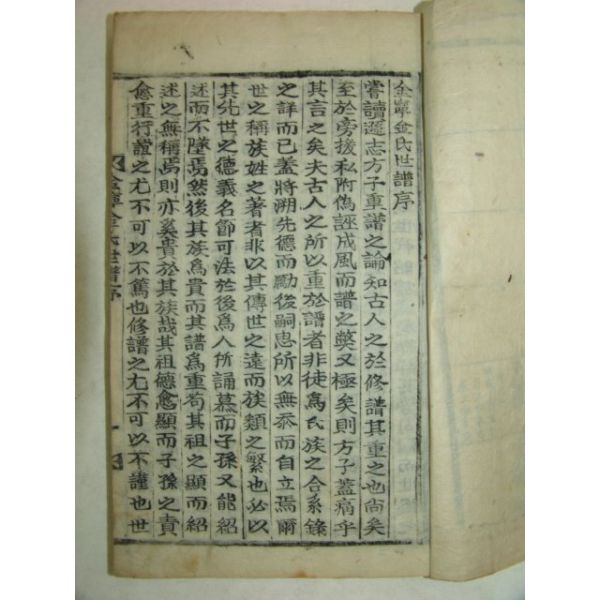 金寧金氏世譜序
嘗讀遜志方子重譜之論知古人之於修譜其重之也尙矣
至於旁援私附僞誣成風而譜之獘又極矣則方子蓋痛乎
其言之矣夫古人之所以重於譜者非徒爲氏族之合系錄
之詳而已蓋將溯先德而勵後嗣思所以無忝而自立焉爾
世之稱族姓之著者非以其傳世之遠而族類之繁也必以
其先世之德義名節可法於後爲人所誦慕而子孫又能紹
述而不墜焉然後其族爲貴而其譜爲重苟其祖之顯而紹
述之無稱焉則亦奚貴於其族哉其祖德愈顯而子孫之責
愈重行誼之尤不可以不篤也修譜之尤不可以不謹也世
金寧金氏世譜序
一